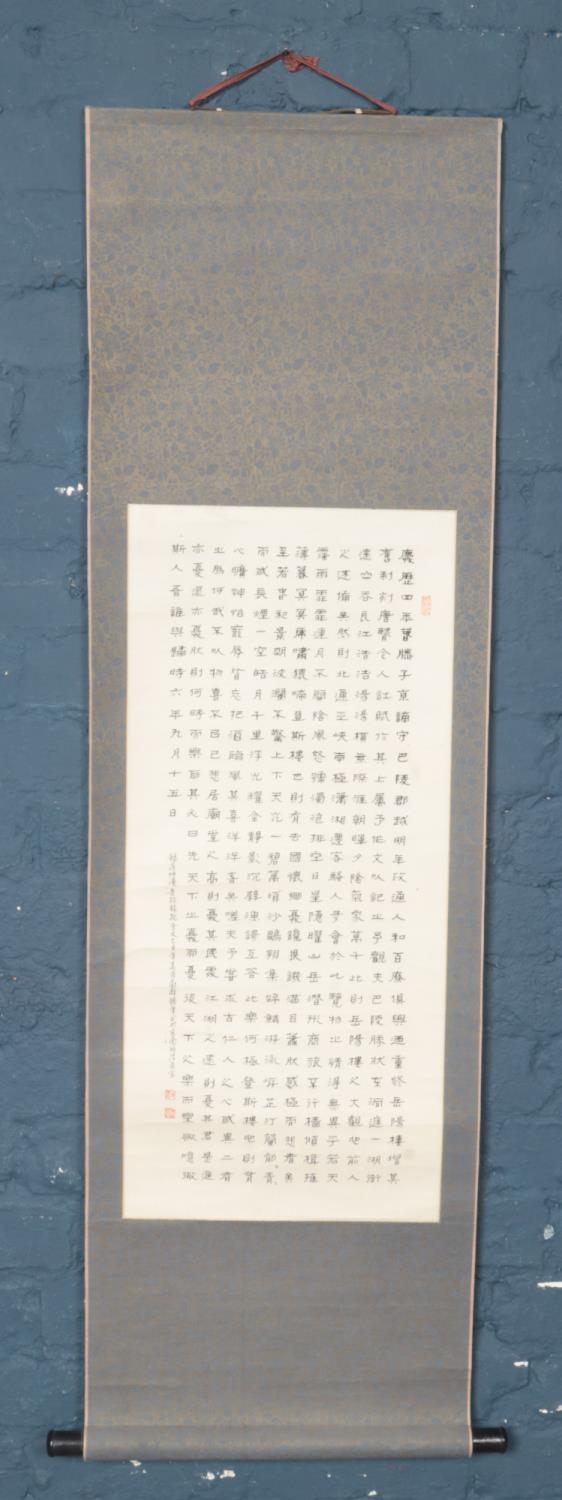 慶歷四年春滕子京謫守巴陵郡越明年政通人和百廢俱興迺重修岳陽樓增其
舊制刻唐賢今人詩賦於其上屬予作文以記之予觀夫巴陵勝狀在洞庭一湖銜
遠山吞長江浩浩湯湯橫無際涯朝暉夕陰氣象萬千此則岳陽樓之大觀也前人
之述備矣然則北通巫峽南極瀟湘遷客騷人多會於此覽物之情得無異乎若夫
霪雨霏霏連月不開陰風怒號濁浪排空日星隱曜山岳潛形商旅不行檣傾楫摧
薄暮冥冥虎嘯猿啼登斯樓也則有去國懷鄉憂讒畏譏滿目蕭然感極而悲者矣
至若春和景明波瀾不驚上下天光一碧萬頃沙鷗翔集錦鱗游泳岸芷汀蘭郁郁青青
而或長煙一空皓月千里浮光耀金靜影沉璧漁歌互答此樂何極登斯樓也則有
心曠神怡寵辱皆忘把酒臨風其喜洋洋者矣嗟夫予嘗求古仁人之心或異二者
之為何哉不以物喜不以己悲居廟堂之高則憂其民處江湖之遠則憂其君是進
亦憂退亦憂然則何時而樂耶其必曰先天下之憂而憂後天下之樂而樂歟噫微
斯人吾誰與歸時六年九月十五日